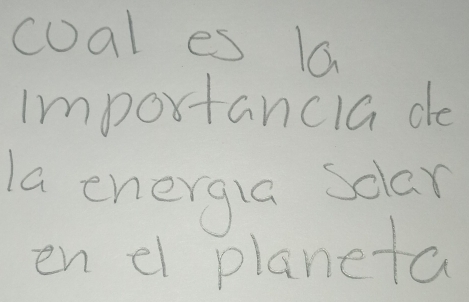 cual es la
importancia de
la energia solar
en el planeta